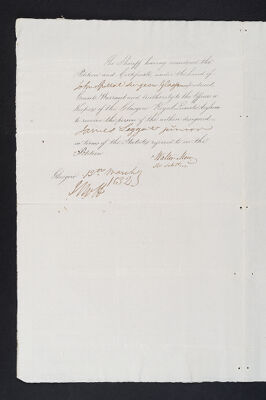 The Sheriff having considered the
Petition and Certificate under the hand of
John Spittal Surgeon Glasgow
Grants Warrant and Authority to the Officers &
Keepers of the Glasgow Royal Lunatic Asylum
to receive the person of the within designed
James Leggat junior
in terms of the Statute referred to in the
Petition
Walter Moir
Glasgow 13th March
1832